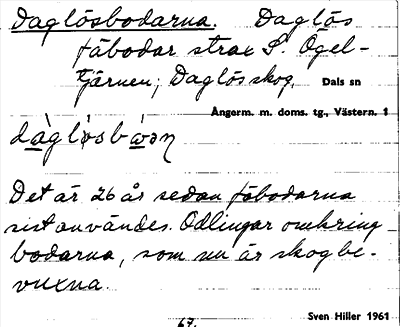 Daglösbodarna. Daglös
fäbodar strax S. Ögel-
tjärnen; Daglösskog.
Dals sn
Ångerm. m. doms. tg., Västern. 1
Det är 26 år sedan fäbodarna
sist användes. Odlingar omkring
bodarna, som nu är skogbe-
vuxna.
67.
Sven Hiller 1961